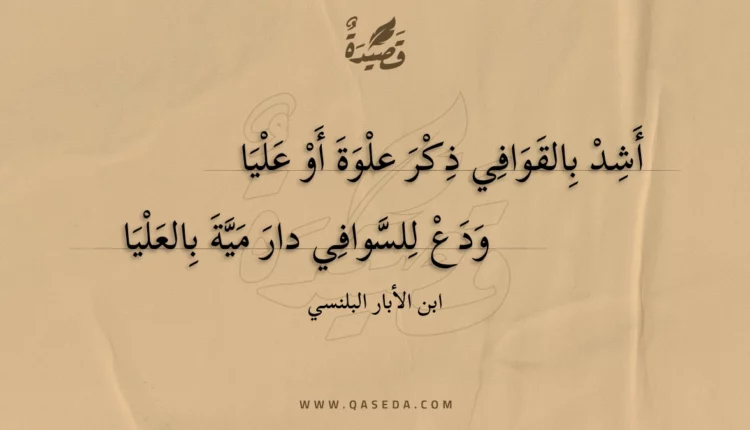 قَصِيْدَةٌ
أَشِدْ بِالقَوَافِي ذِكْرَ علْوَةَ أَوْ عَلْيَا
وَدَعْ لِلسَّوافِي دارَ مَيَّةَ بِالعَلْيَا
ابن الأبار البلنسي
WWW.QASEDA.COM